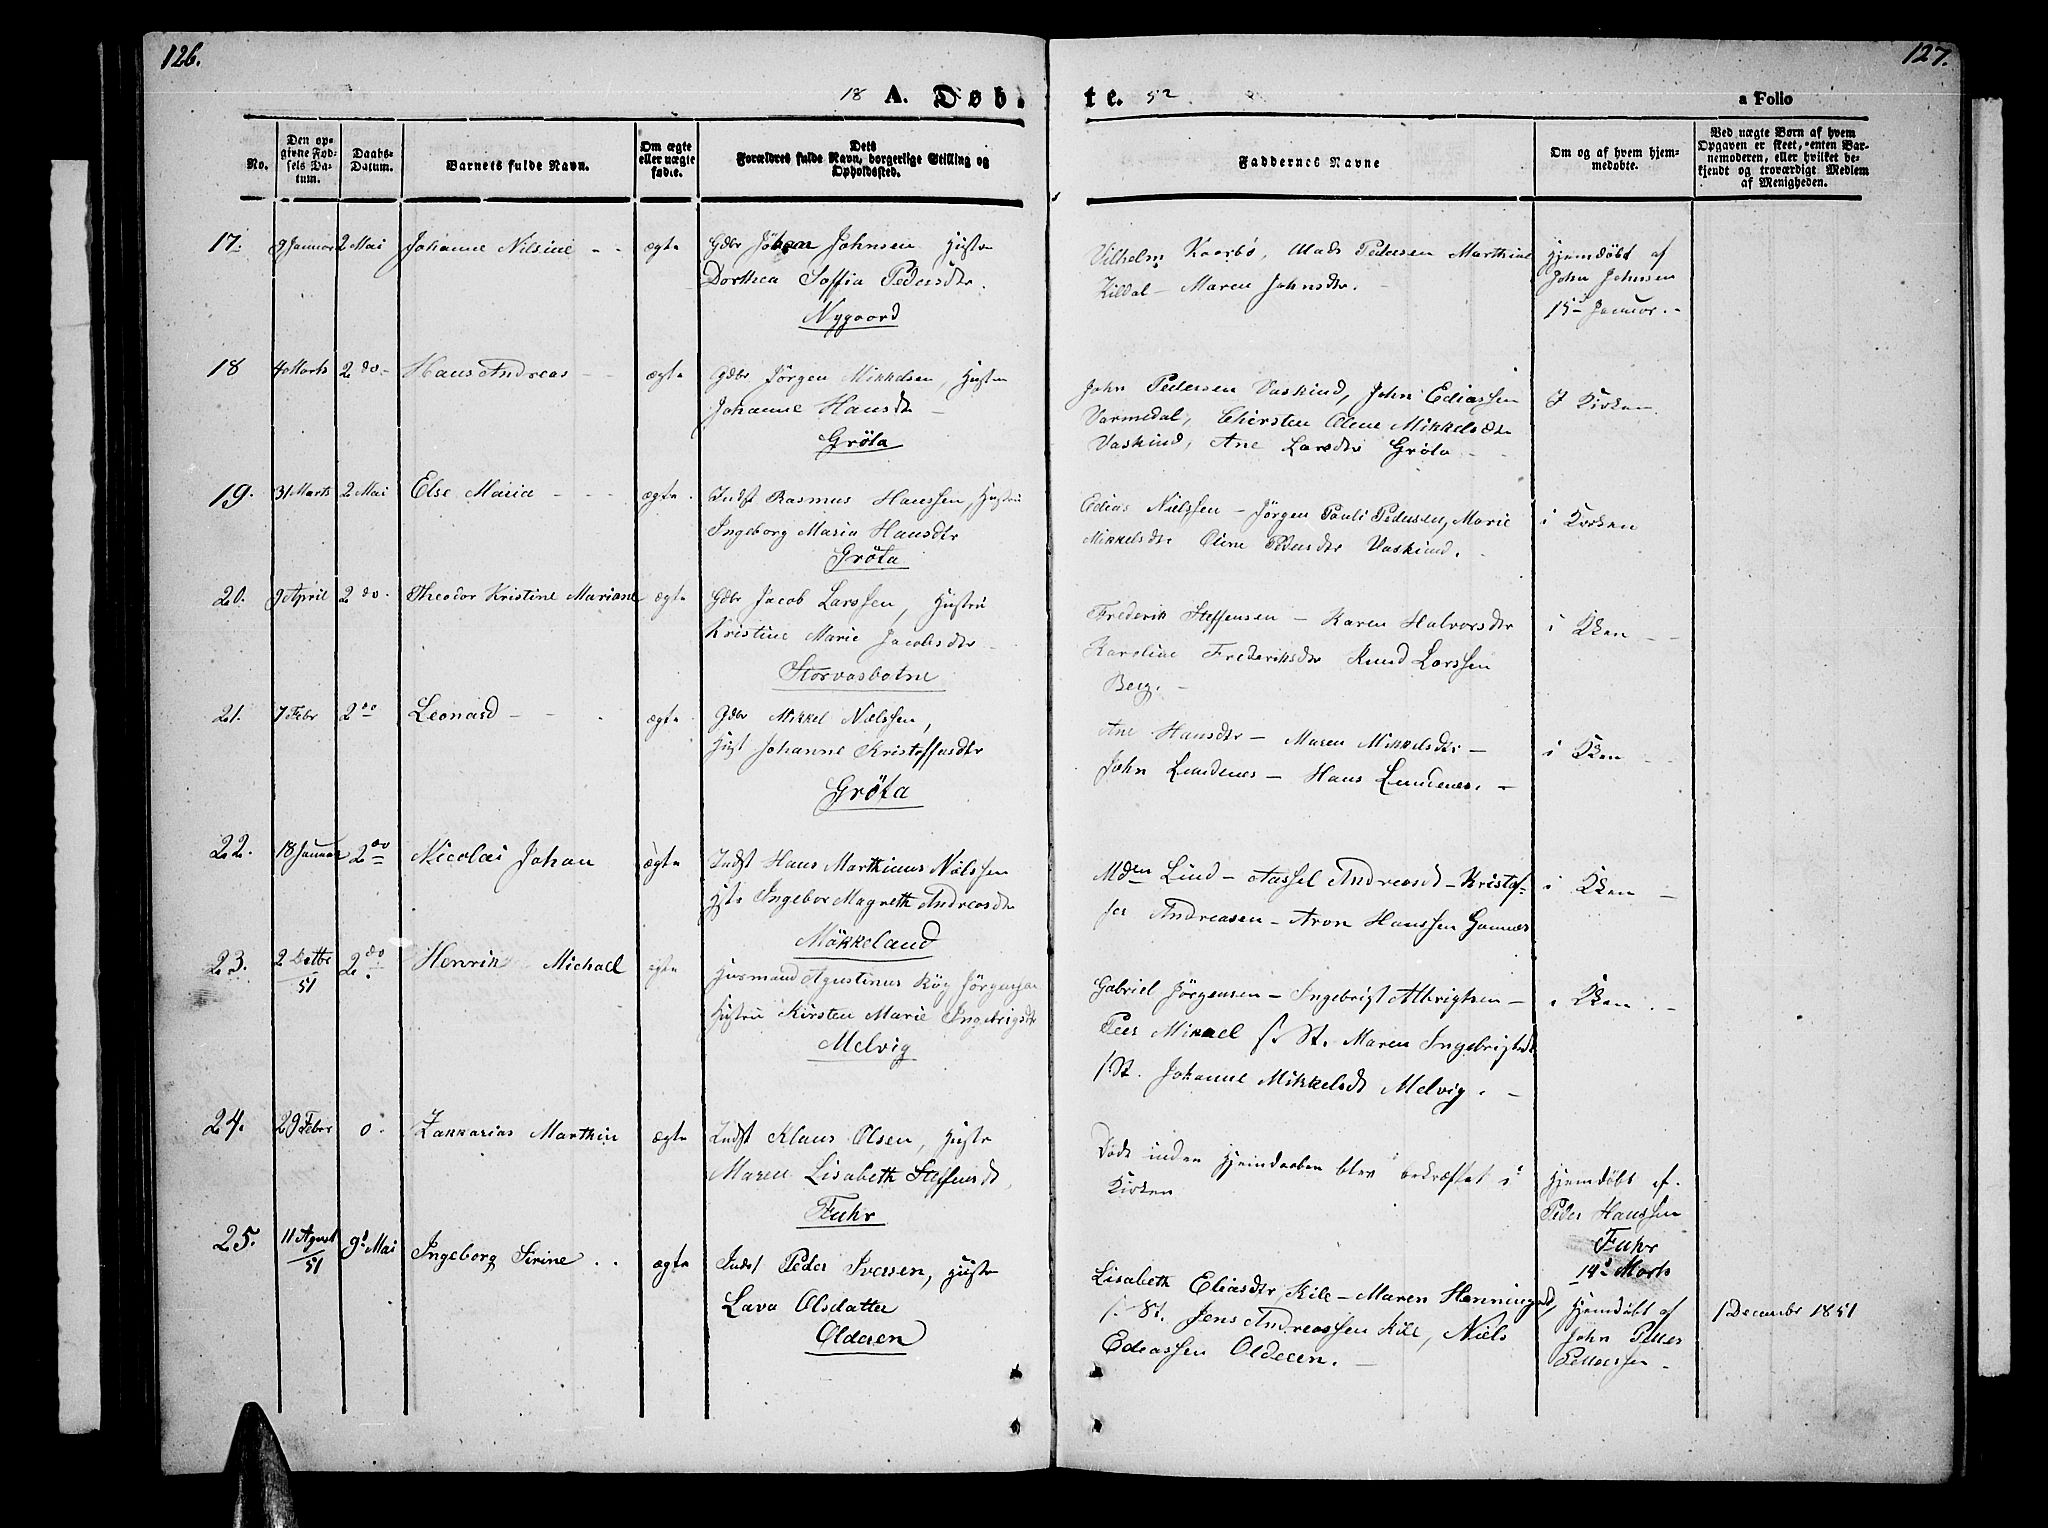 126.
127.
18 A. Døb-
te. 52
a Folio
No.
Den op-
givne Fød-
sels Da-
tum.
Daabs-
Datum.
Barnets fulde Navn.
Om ægte
eller uægte
født.
Dets
Forældres fulde Navn, borgerlige Stilling og
Opholdssted.
Faddernes Navne
Om og af hvem hjem-
medøbte.
Ved uægte Børn af hvem
Opgaven er skeet, enten Bar-
nemoderen, eller hvilket be-
kjendt og troværdigt Medlem
af Menigheden.
17. 9 Januar 2 Mai Johanne Nilsine - - ægte
Gdbr Johan Johnsen Hustru
Dorthea Soffia Pedersdtr.
Nygaard
Vilhelm Kaarbø, Mads Pedersen Marthine
Kildal - Maren Johnsdtr. -
Hjemdøbt af
John Johnsen
15de Januar. -
18 4 Marts 2 do - Hans Andreas - - ægte
Gdbr Jørgen Mikkelsen, Hustru
Johanne Hansdtr -
Grøta
John Pedersen Vaskind, John Ediassen
Varmedal, Chirsten Olene Mikkelsdtr
Vaskind, Ane Larsdtr Grøta -
I Kirken.
19. 31 Marts 2 Mai Else Maria - - - ægte.
Indst Rasmus Hanssen, Hustru
Ingeborg Maria Hansdtr
Grøta
Edias Nielssen - Jørgen Pauli Pedersen, Marie
Mikkelsdtr Oline Pedersdtr Vaskind. -
i Kirken
20. 9 April 2 do - Theodor Kristine Mariane ægte
Gdbr Jacob Larssen, Hustru
Kristine Marie Jacobsdtr -
Storvasbotne
Frederik Steffensen - Karen Halvorsdtr
Karoline Frederiksdtr Knud Larssen
Berg. -
i Kken - -
21. 7 Febr 2 do Leonard - - - ægte
Gdbr Mikkel Nielssen,
Hust Johanne Kristoffersdtr
Grøta
Ane Hansdtr - Maren Mikkelsdtr -
John Lundenes - Hans Lundenes. -
i Kken - -
22. 18 Januar 2 do Nicolai Johan ægte
Indst Hans Marthinus Nielssen
Hst Ingebor Magreth Andreasdtr
Møkkeland
Mdm Lind - Aassel Andreasd - Kristof-
fer Andreasen - Aron Hanssen Gannes
i Kken -
23. 2 Octbr 51 2 do. Henrik Michael ægte
Husmand Agustinus Køg Jørgensen
Hustru Kirsten Marie Ingebrigsdtr
Melvig
Gabriel Jørgensen - Ingebrigt Albrigtsen -
Peer Mikael /: St. Maren Ingebrigtsdtr
/ St. Johanne Mikkelsdt Melvig. -
i Kken. -
24. 29 Febr 0. Zakkarias Marthin ægte
Indst Klaus Olsen, Hustr
Maren Lisabeth Steffensdt,
Fuhr
Døde inden Hjemdaaben blev bekræftet i
Kirken
Hjemdøbt af.
Peder Hanssen
Fuhr
14de Marts
25. 11 Agust 51 9d Mai Ingeborg Sirine . . ægte
Indst Peder Iverssen, Hustr
Lava Olsdatter
Olderen
Lisabeth Eliasdtr Kile - Maren Henningsd,
/: St. Jens Andreassen Kile, Niels
Ediassen Olderen. -
Hjemdøbt af
John Petter
Pettersen -
1 December 1851